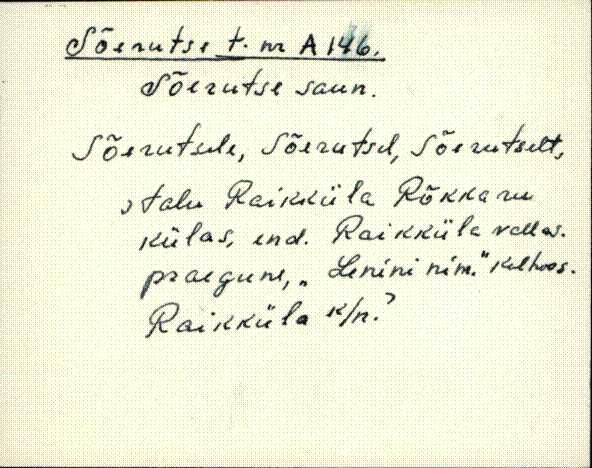 Sõerutse t. nr A 146.
Sõerutse saun.
Sõerutsele, Sõerutsel, Sõerutselt,
, talu Raikküla Rõkkaru
külas, end. Raikküla vallas.
praegune, „Lenini nim." kolhoos.
Raikküla k/n.'